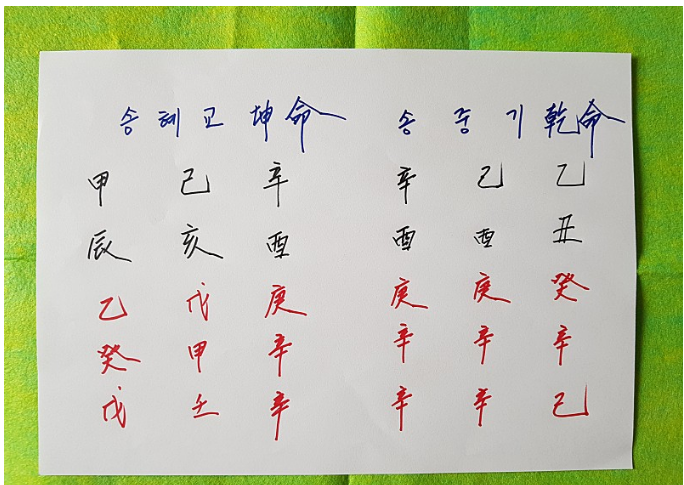 송혜교 坤命 송중기 乾命
甲 己 辛 辛 己 乙
辰 亥 酉 酉 酉 丑
乙 戊 庚 庚 庚 癸
癸 甲 辛 辛 辛 辛
戊 壬 辛 辛 辛 己